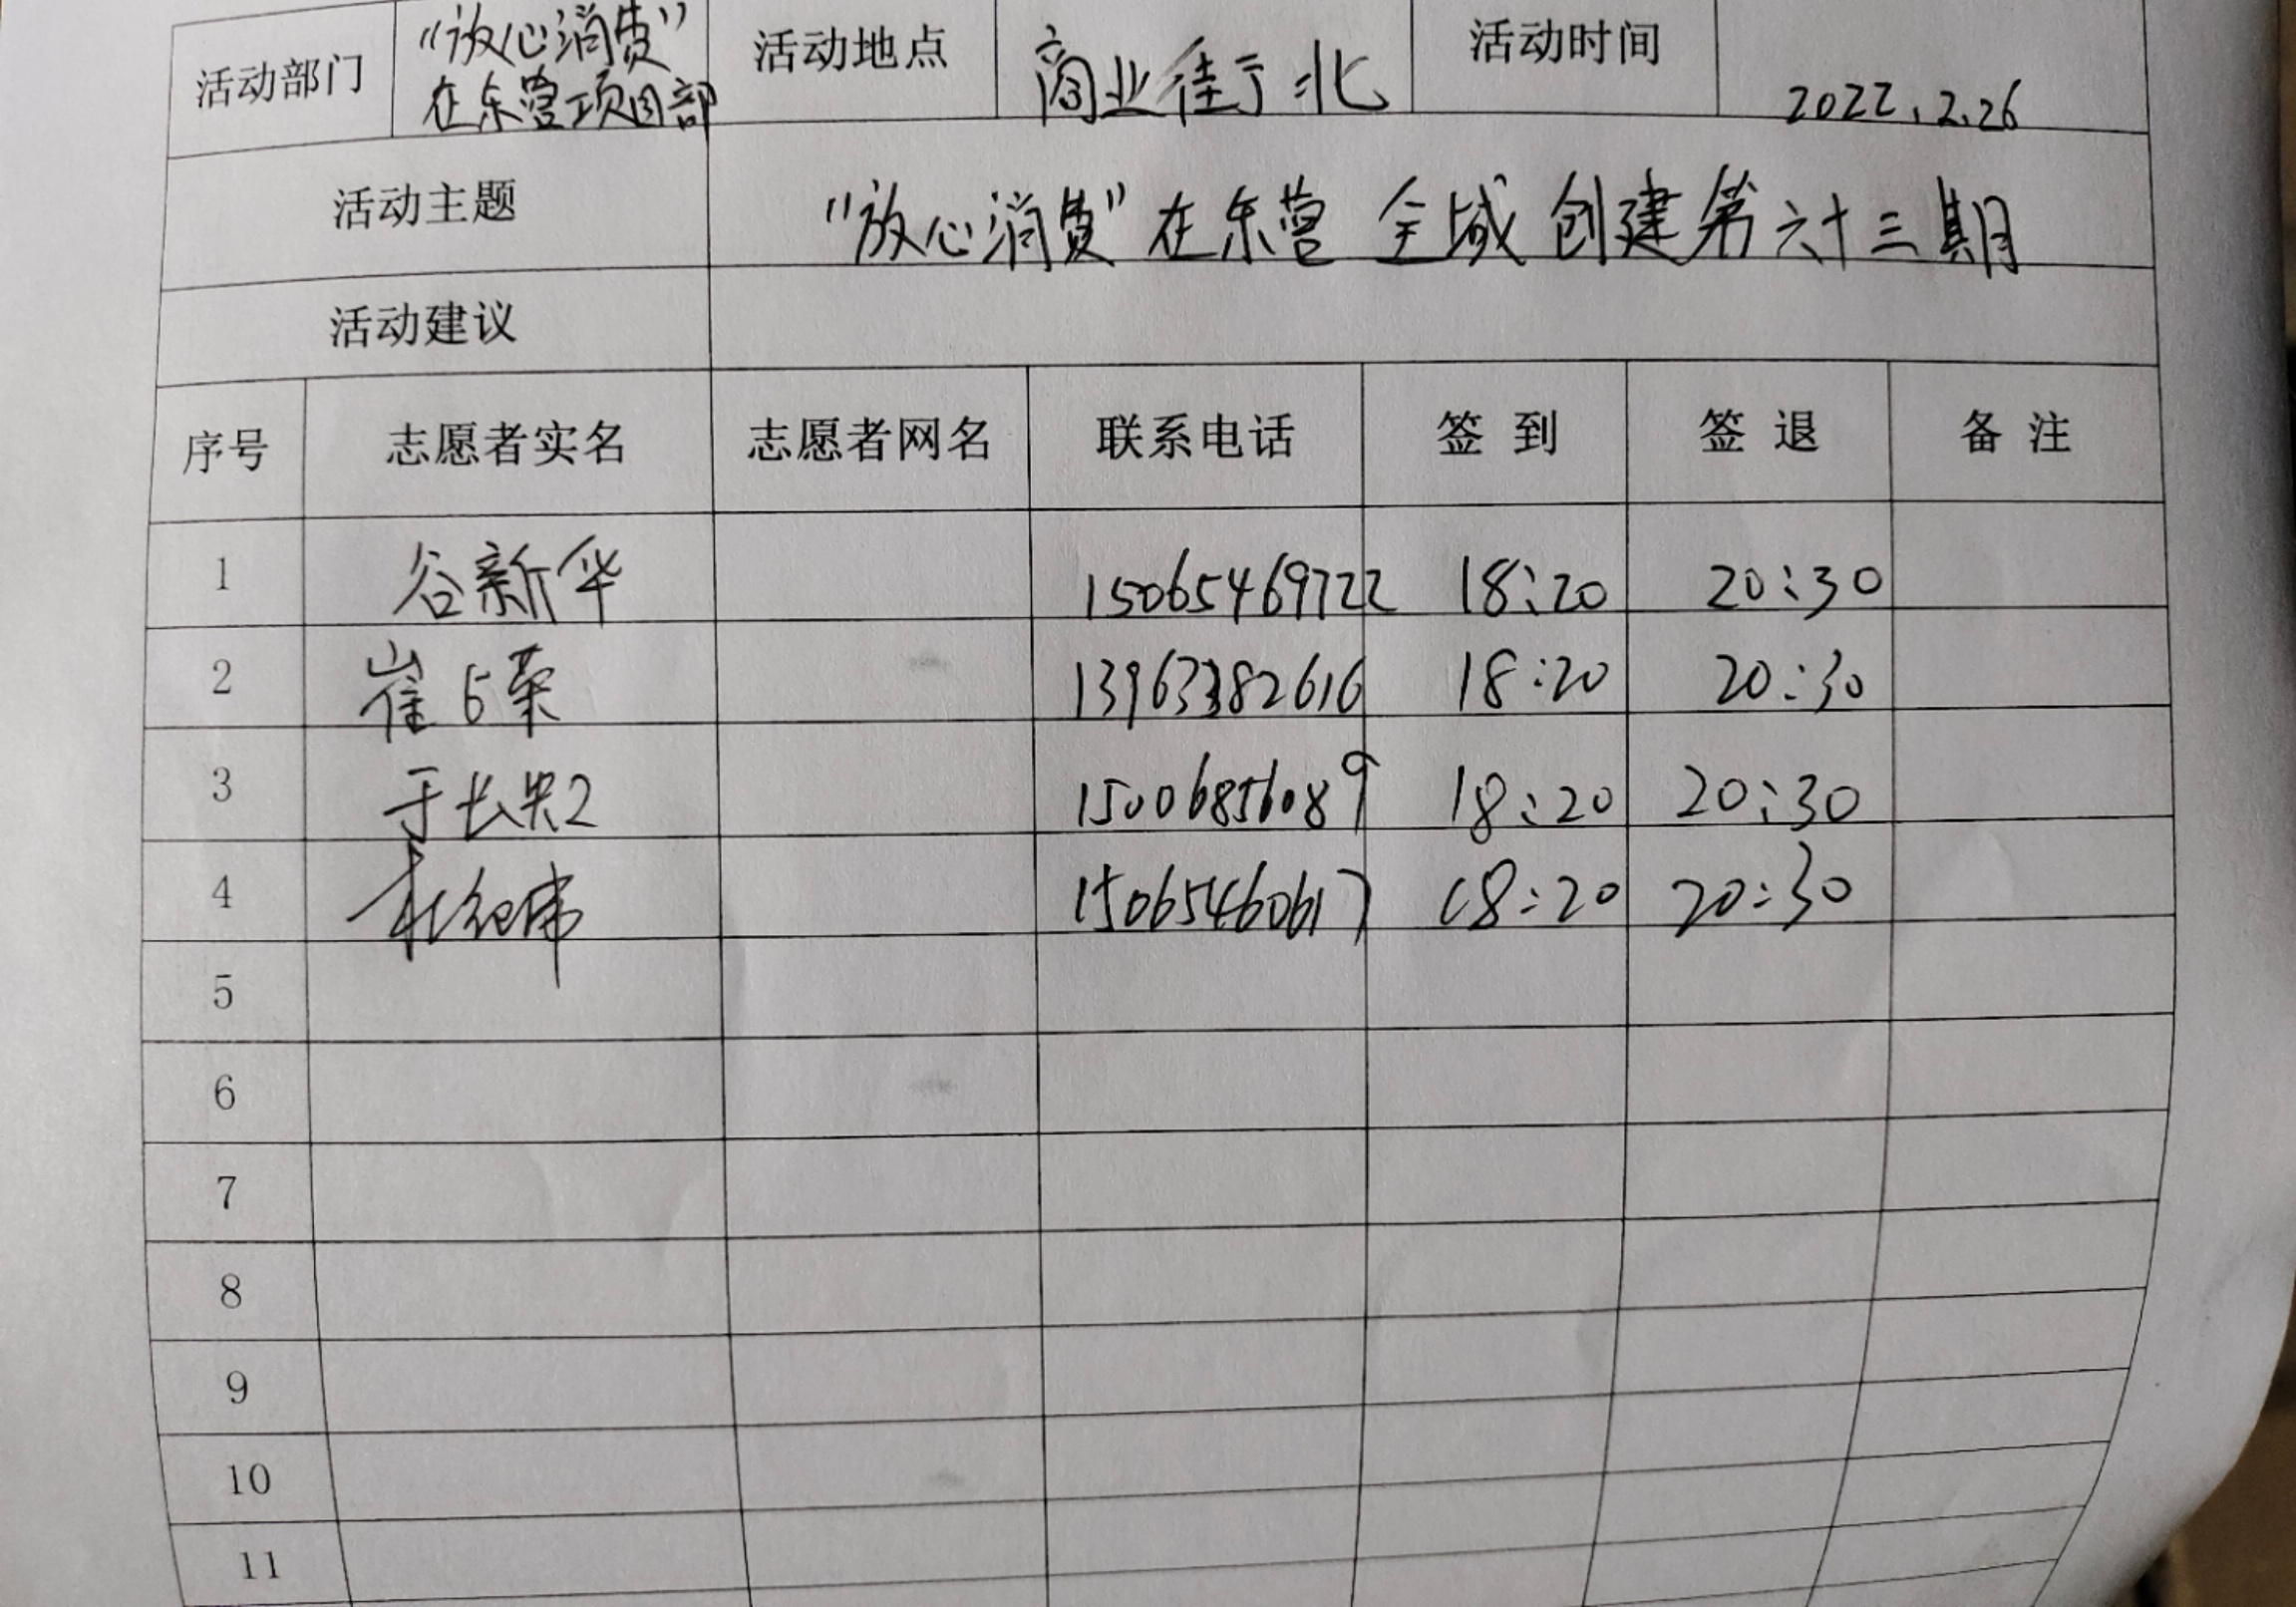 活动部门 “放心消费” 在东营项目部 活动地点 商业街北 活动时间 2022.2.26
活动主题 “放心消费”在东营 全域 创建第六十三期
活动建议
序号 志愿者实名 志愿者网名 联系电话 签到 签退 备注
1 谷新华 15065469722 18:20 20:30
2 崔 荣 13963382616 18:20 20:30
3 于长 15006856089 18:20 20:30
4 15065460617 18:20 20:30
5
6
7
8
9
10
11